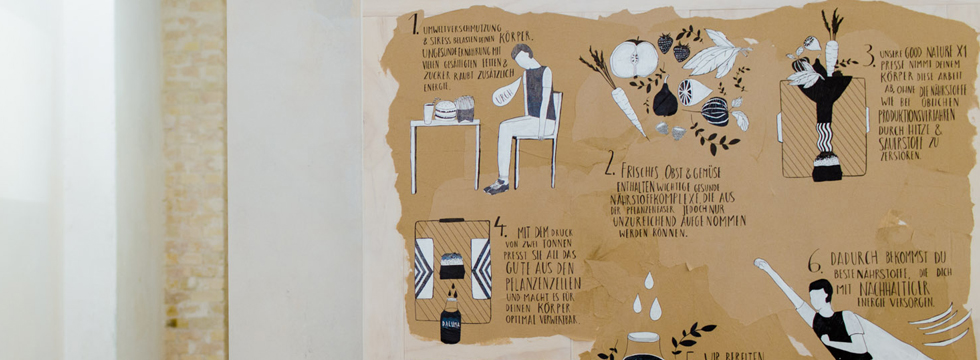 1. UMWELTVERSCHMUTZUNG
& STRESS BELASTEN DEINEN KÖRPER.
UNGESUNDE ERNÄHRUNG MIT
VIELEN GESÄTTIGTEN FETTEN &
ZUCKER RAUBT ZUSÄTZLICH
ENERGIE.
URGH
2. FRISCHES OBST & GEMÜSE
ENTHALTEN WICHTIGE GESUNDE
NÄHRSTOFFKOMPLEXE, DIE AUS
DER PFLANZENFASER JEDOCH NUR
UNZUREICHEND AUFGENOMMEN
WERDEN KÖNNEN.
3. UNSERE GOOD NATURE X1
PRESSE NIMMT DEINEM
KÖRPER DIESE ARBEIT
AB, OHNE DIE NÄHRSTOFFE
WIE BEI ÜBLICHEN
PRODUKTIONSVERFAHREN
DURCH HITZE &
SAUERSTOFF ZU
ZERSTÖREN.
4. MIT DEM DRUCK
VON ZWEI TONNEN
PRESST SIE ALL DAS
GUTE AUS DEN
PFLANZENZELLEN
UND MACHT ES FÜR
DEINEN KÖRPER
OPTIMAL VERWERTBAR.
DALUMA
5. WIR BEREITEN
6. DADURCH BEKOMMST DU
BESTE NÄHRSTOFFE, DIE DICH
MIT NACHHALTIGER
ENERGIE VERSORGEN.